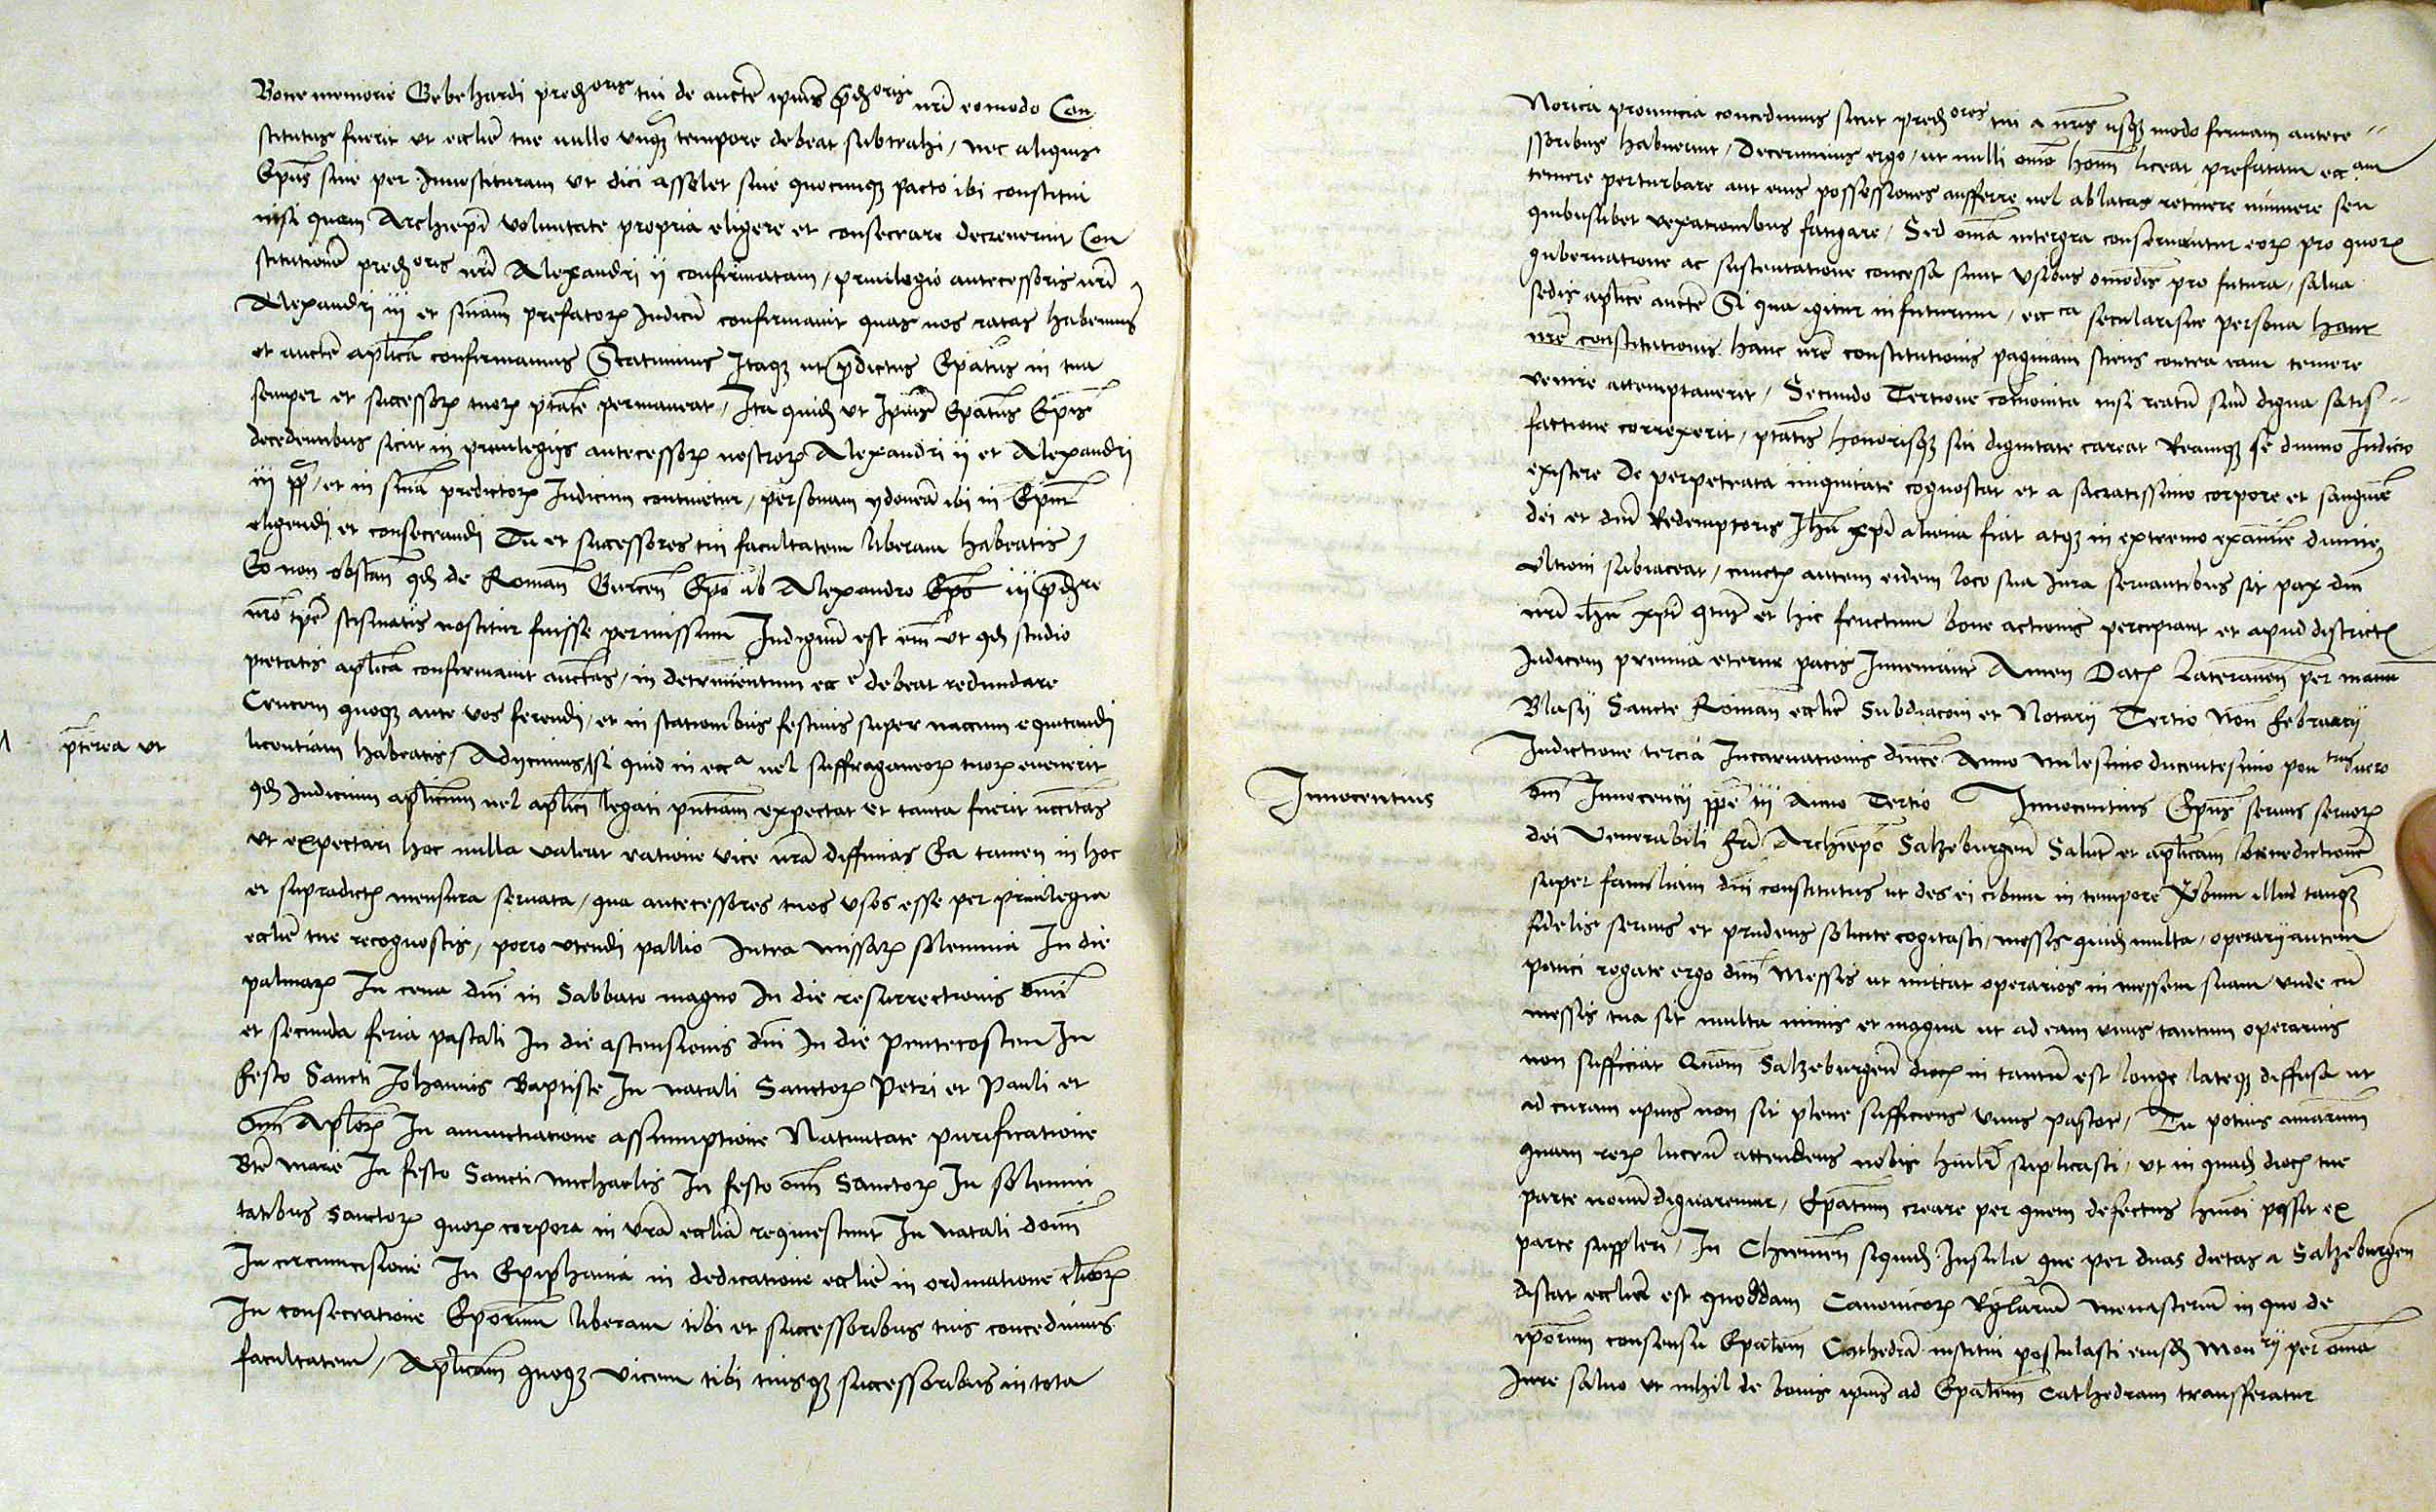 Bone memorie Gebehardi predecoris tui de aucte ipius pdecoris nri eo modo Con
stitutus fuerit ut ecclie tue nullo unqz tempore debeat subtrahi / nec aliquis
Epus siue per Inuestituram ut dici assolet siue quocunqz pacto ibi constitui
nisi quem Archiepi voluntate propria eligere et consecrare decreuerint Con
stitutione predecoris nri Alexandri ij confirmatam / priuilegio antecessoris nri
Alexandri iij et sniam prefatorz Iudicu confirmauit quas nos ratas habemus
et aucte aplica confirmamus Statuimus Itaqz ut pdictus Epatus in tua
semper et successorz tuorz ptate permaneat / Ita quid ut Ipius Epatus Epis
decedentibus sicut in preuilegijs antecessorz nostrorz Alexandri ij et Alexandri
iij pp / et in snia predictorz Iudicum continetur / personam ydonea ibi in Epum
eligendi et consecrandi Tu et successores tui facultatem liberam habeatis /
Eo non obstan qd de Roman Gurcen Epo ab Alexandro Epo iij pdre
nro tpe scismatis noscitur fuisse permissum Indignu est em ut qd studio
pietatis aplica confirmauit auctas / in detrimentum ecce debeat redundare
Crucem quoqz ante uos ferendi / et in stationibus festiuis super naccum equitandi
pterea ut
licentiam habeatis / Adycimus si quid in ecca uel suffraganeorz tuorz euenerit
qd Iudicium aplicum uel aplici legati pntiam expectat et tanta fuerit nccitas
ut expectari hoc nulla valeat ratione vice nra diffinias Ea tamen in hoc
et supradictz mensura seruata / qua antecessores tuos usos esse per priuilegia
ecclie tue recognoscis / porro utendi pallio Intra missarz solemnia In die
palmarz In cena dni in Sabbato magno In die resurrectionis dnice
et secunda feria pascali In die ascensionis dni In die pentecosten In
festo Sancti Johannis Baptiste In natali Sanctorz Petri et Pauli et
Oim Aplorz In annuctiatione assumptione Natiuitate purificatione
Bte marie In festo Sancti michaelis In festo oim Sanctorz In solemni
tatibus Sanctorz quorz corpora in vra ecclia requiescunt In natali domi
In circumcisione In Epiphania in dedicatione ecclie in ordinatione clicorz
In consecratione Eporum liberam tibi et successoribus tuis concedimus
facultatem / Aplicam quoqz vicem tibi tuisqz successoribus in tota
Norica prouincia concedimus sicut predecores tui a nris usqz modo firmam antece
ssoribus habuerunt / Decernimus ergo / ut nulli omo homi liceat prefatam eccam
temere perturbare aut eius possessiones aufferre uel ablatas retinere minuere seu
quibuslibet vexationibus fatigare / Sed omia intergra conseruentur eorz pro quorz
gubernatione ac sustentatione concessa sunt usibus omodis pro futura / salua
sedis aplice aucte Si qua igitur in futurum / eccca secularisue persona hanc
nre constitutionis hanc nre constitutionis paginam sciens contra eam temere
venire attemptauerit / Secundo Tertioue comonita nisi reatu suu digna satis
factione correxerit / ptatis honorisqz sui dignitate careat Reamqz se diuino Iudicio
existere De perpetrata iniquitate cognoscat et a sacratissimo corpore et sanguine
dei et dni Redemptoris Ihu xpi aliena fiat atqz in extremo examine diuine
ultioni subiaceat / cunctz autem eidem loco sua Iura seruantibus sit pax dni
nri Ihu xpi qtus et hic fructum bone actionis percipiant et apud districtz
Iudicem premia eterne pacis Inueniant Amen Datz Lateranen per manu
Blasij Sancte Roman ecclie Subdiaconi et Notarij Tertio Non februarij
Indictione tercia Incarnationis dnice Anno milesimo ducentesimo pontus uero
Innocentius
dni Innocencij ppe iij Anno Tertio Innocentius Epus seruus seruorz
dei Venerabili fri Archiepo Salzeburgen Salute et aplicam benedictione
super familiam dni constitutus ut des ei cibum in tempore Xbum illud tanqz
fidelis seruus et prudens solicite cogitasti / messis quid multa / operarij autem
pauci rogate ergo dnm Messis ut mittat operarios in messem suam unde cu
messis tua sit multa nimis et magna ut ad eam unus tantum operarius
non sufficiat Quom Salzeburgen diocz in tantu est longe lateqz diffusa ut
ad curam ipius non sit plene sufficiens unus pastor / Tu potius animarum
quam rerz lucru attendens nobis humilr suplicasti / ut in quad diocz tue
parte nouu dignaremur / Epatum creare per quem defectus huiusmoi possit ex
parte suppleri / In Chiemen siquid Insula que per duas dietas a Salzeburgen
distat ecclie est quoddam Canonicorz Rglariu monasteriu in quo de
iporum consensu Epalem Cathedra institui postulasti eiusd monrij per omia
Iure saluo ut nihil de bonis ipius ad Epalem Cathedram transferatur